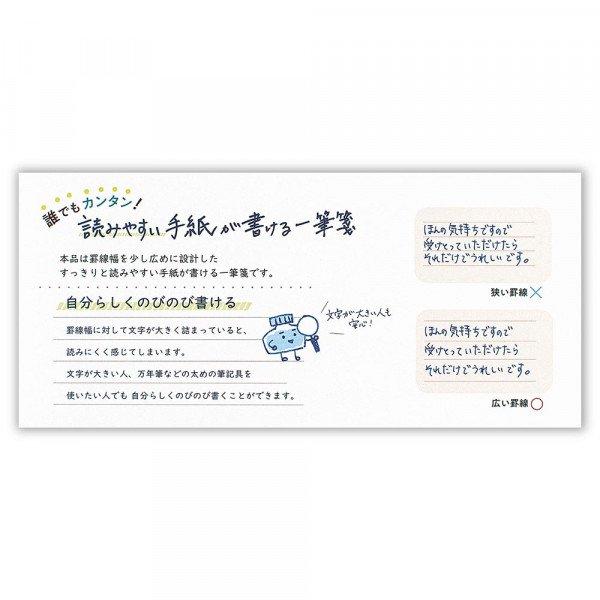 誰でもカンタン!
読みやすい手紙が書ける一筆箋
本品は罫線幅を少し広めに設計した
すっきりと読みやすい手紙が書ける一筆箋です。
自分らしくのびのび書ける
罫線幅に対して文字が大きく詰まっていると、
読みにくく感じてしまいます。
文字が大きい人、万年筆などの太めの筆記具を
使いたい人でも 自分らしくのびのび書くことができます。
文字が大きい人も
安心!
ほんの気持ちですので
受けとっていただけたら
それだけでうれしいです。
狭い罫線×
ほんの気持ちですので
受けとっていただけたら
それだけでうれしいです。
広い罫線○